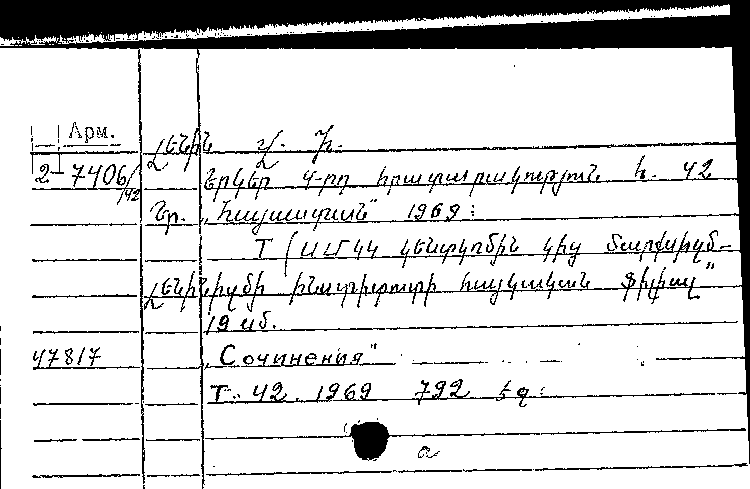 Арм.
Լենին Վ. Ի.
2-7406/42
Երկեր 4-րդ հրատարակություն հ. 42
Եր. „Հայաստան" 1969:
Т (ՍՄԿԿ կենտկոմին կից մարքսիզմ-
Լենինիզմի ինստիտուտի հայկական ֆիլիալ"
19 սմ.
47817 „Сочинения"
Т. 42. 1969 792 էջ:
а